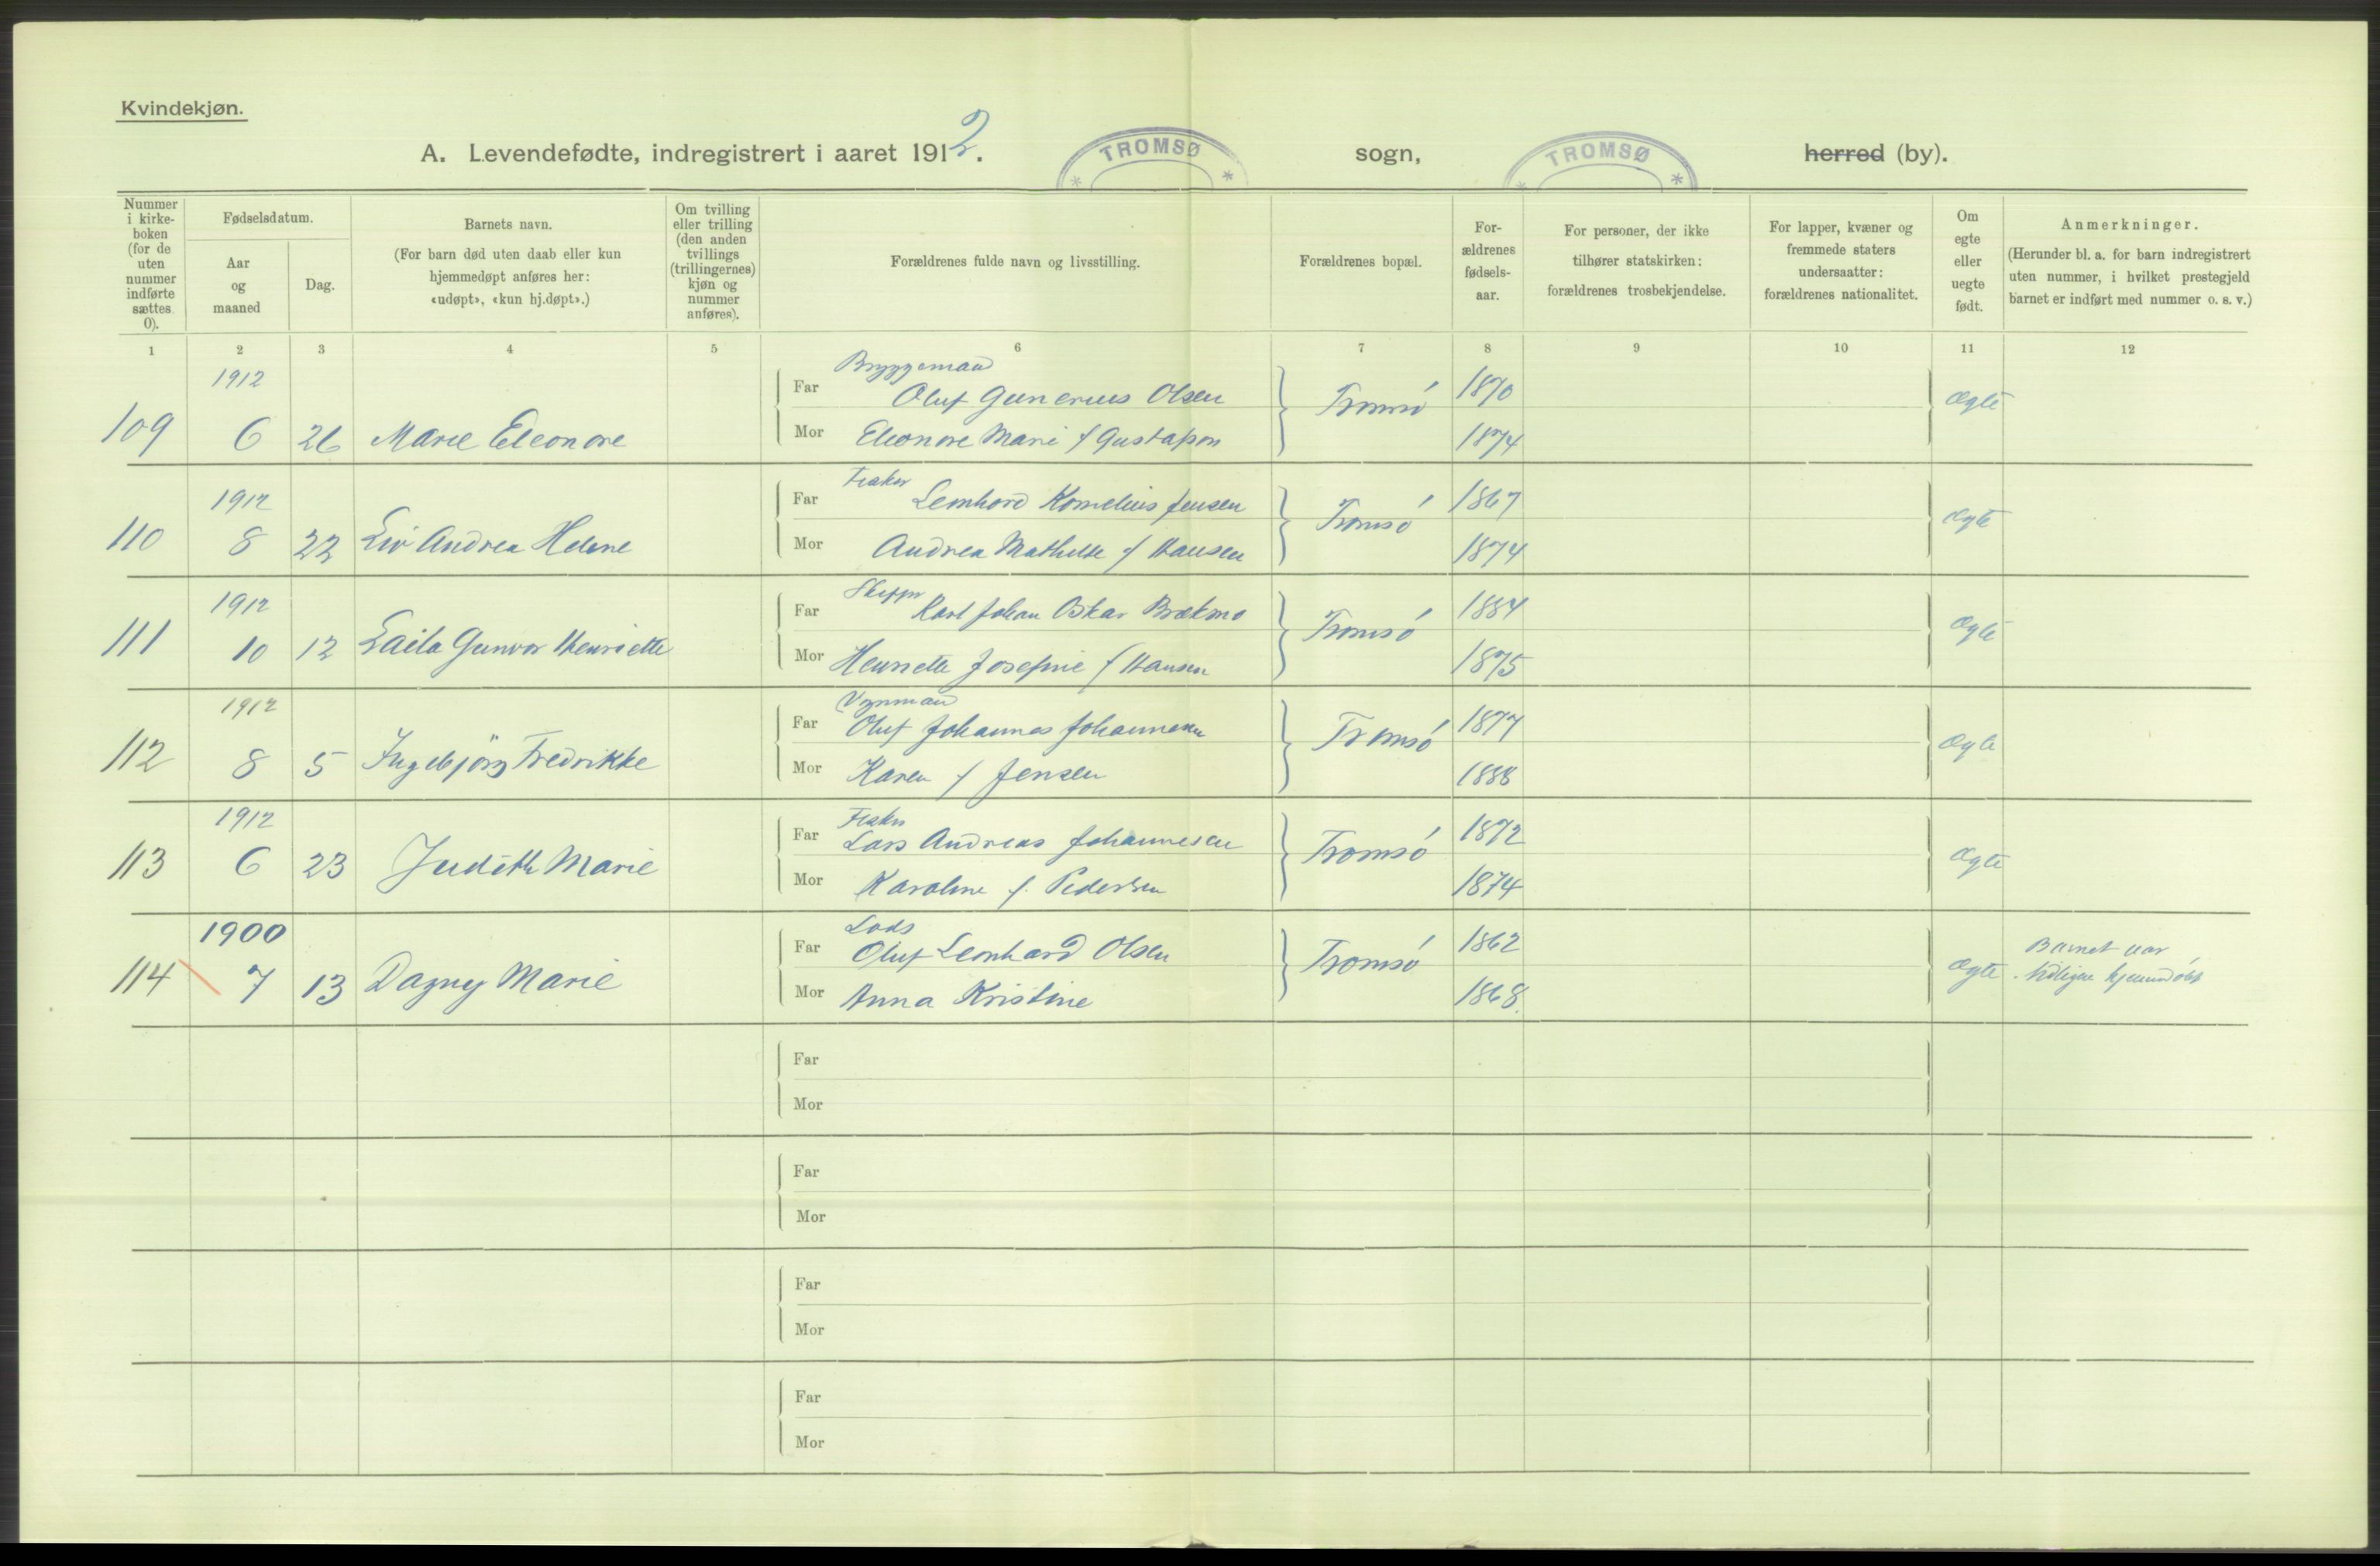 Kvindekjøn.
A. Levendefødte, indregistrert i aaret 1912.
TROMSØ
sogn,
TROMSØ
herred (by).
Nummer
i kirke-
boken
(for de
uten
nummer
indførte
sættes
0).
Fødselsdatum.
Aar
og
maaned
Dag.
Barnets navn.
(For barn død uten daab eller kun
hjemmedøpt anføres her:
«udøpt», «kun hj.døpt».)
Om tvilling
eller trilling
(den anden
tvillings
(trillingernes)
kjøn og
nummer
anføres).
Forældrenes fulde navn og livsstilling.
Forældrenes bopæl.
For-
ældrenes
fødsels-
aar.
For personer, der ikke
tilhører statskirken:
forældrenes trosbekjendelse.
For lapper, kvæner og
fremmede staters
undersaatter:
forældrenes nationalitet.
Om
egte
eller
uegte
født.
Anmerkninger.
(Herunder bl. a. for barn indregistrert
uten nummer, i hvilket prestegjeld
barnet er indført med nummer o. s. v.)
1 2 3 4 5 6 7 8 9 10 11 12
1912
109 6 26 Marie Eleonore
Bryggemand
Far Oluf Gunerius Olsen
Mor Eleonore Marie f Gustafson
Tromsö
1870
1874
Ægte
1912
110 8 22 Liv Andrea Helene
Fisker
Far Leonhard Kornelius Jensen
Mor Andrea Mathilde f Hansen
Tromsö
1867
1874
Ægte
1912
111 10 12 Laila Gunvor Henriette
Skipper
Far Karl Johan Oskar Brækmo
Mor Henriette Josefine f Hansen
Tromsö
1884
1875
Ægte
1912
112 8 5 Ingebjörg Fredrikke
Vognmand
Far Oluf Johannes Johannesen
Mor Karen f Jensen
Tromsö
1877
1888
Ægte
1912
113 6 23 Judith Marie
Fisker
Far Lars Andreas Johannesen
Mor Karoline f. Pedersen
Tromsö
1872
1874
Ægte
1900
114 7 13 Dagny Marie
Lods
Far Oluf Leonhard Olsen
Mor Anna Kristine
Tromsö
1862
1868.
Ægte
Barnet var
tidligere hjemmedöbt
Far
Mor
Far
Mor
Far
Mor
Far
Mor